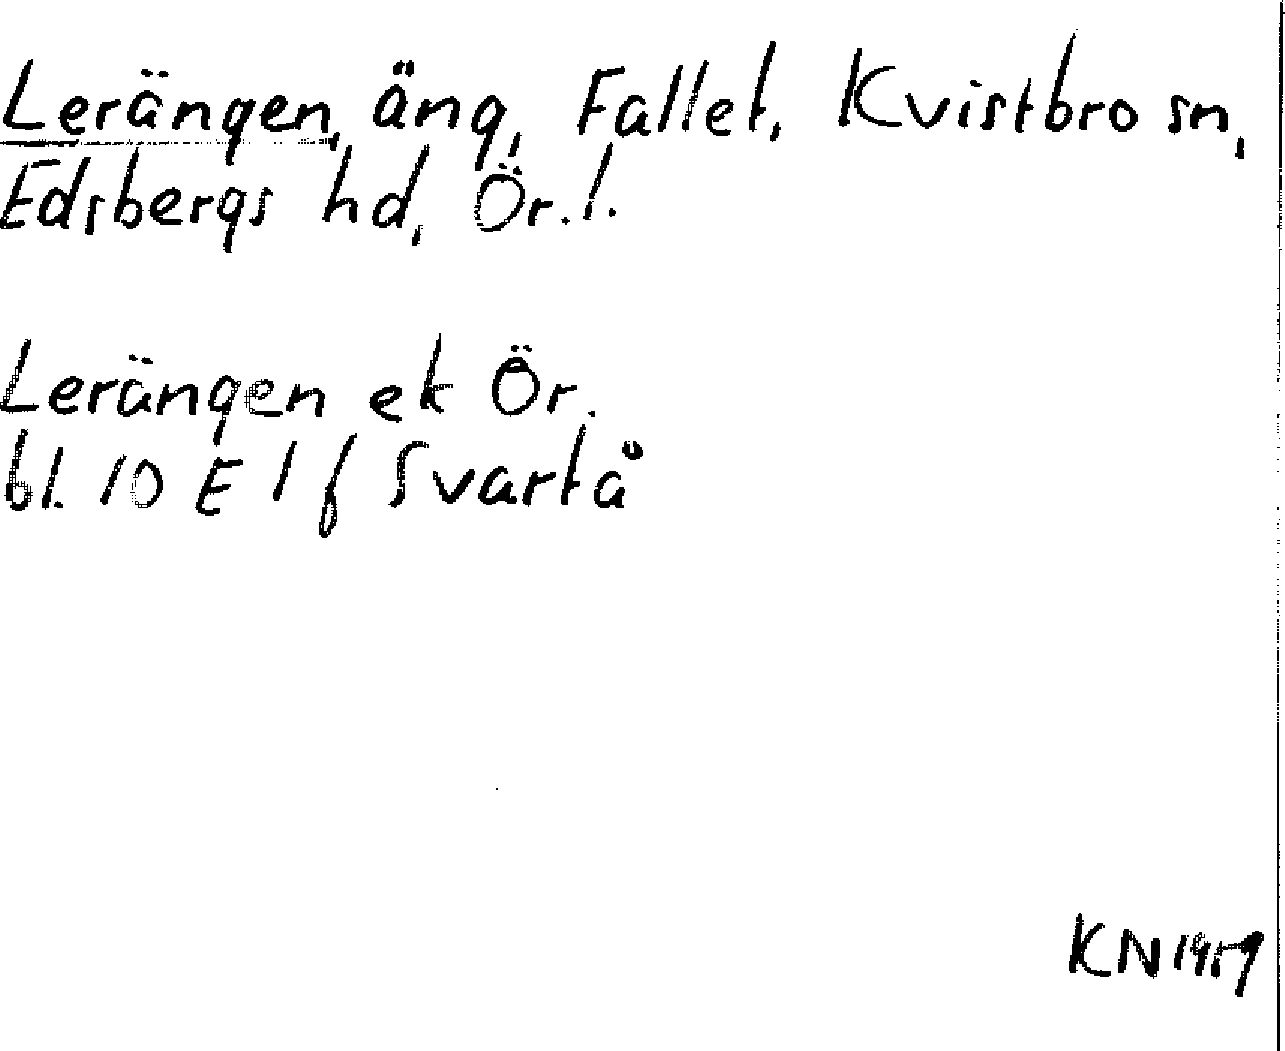 Lerängen, äng, Fallet, Kvistbro sn,
Edsbergs hd, Ör. l.
Lerängen ek Ör.
bl. 10 E 1 f Svartå
KN 1959